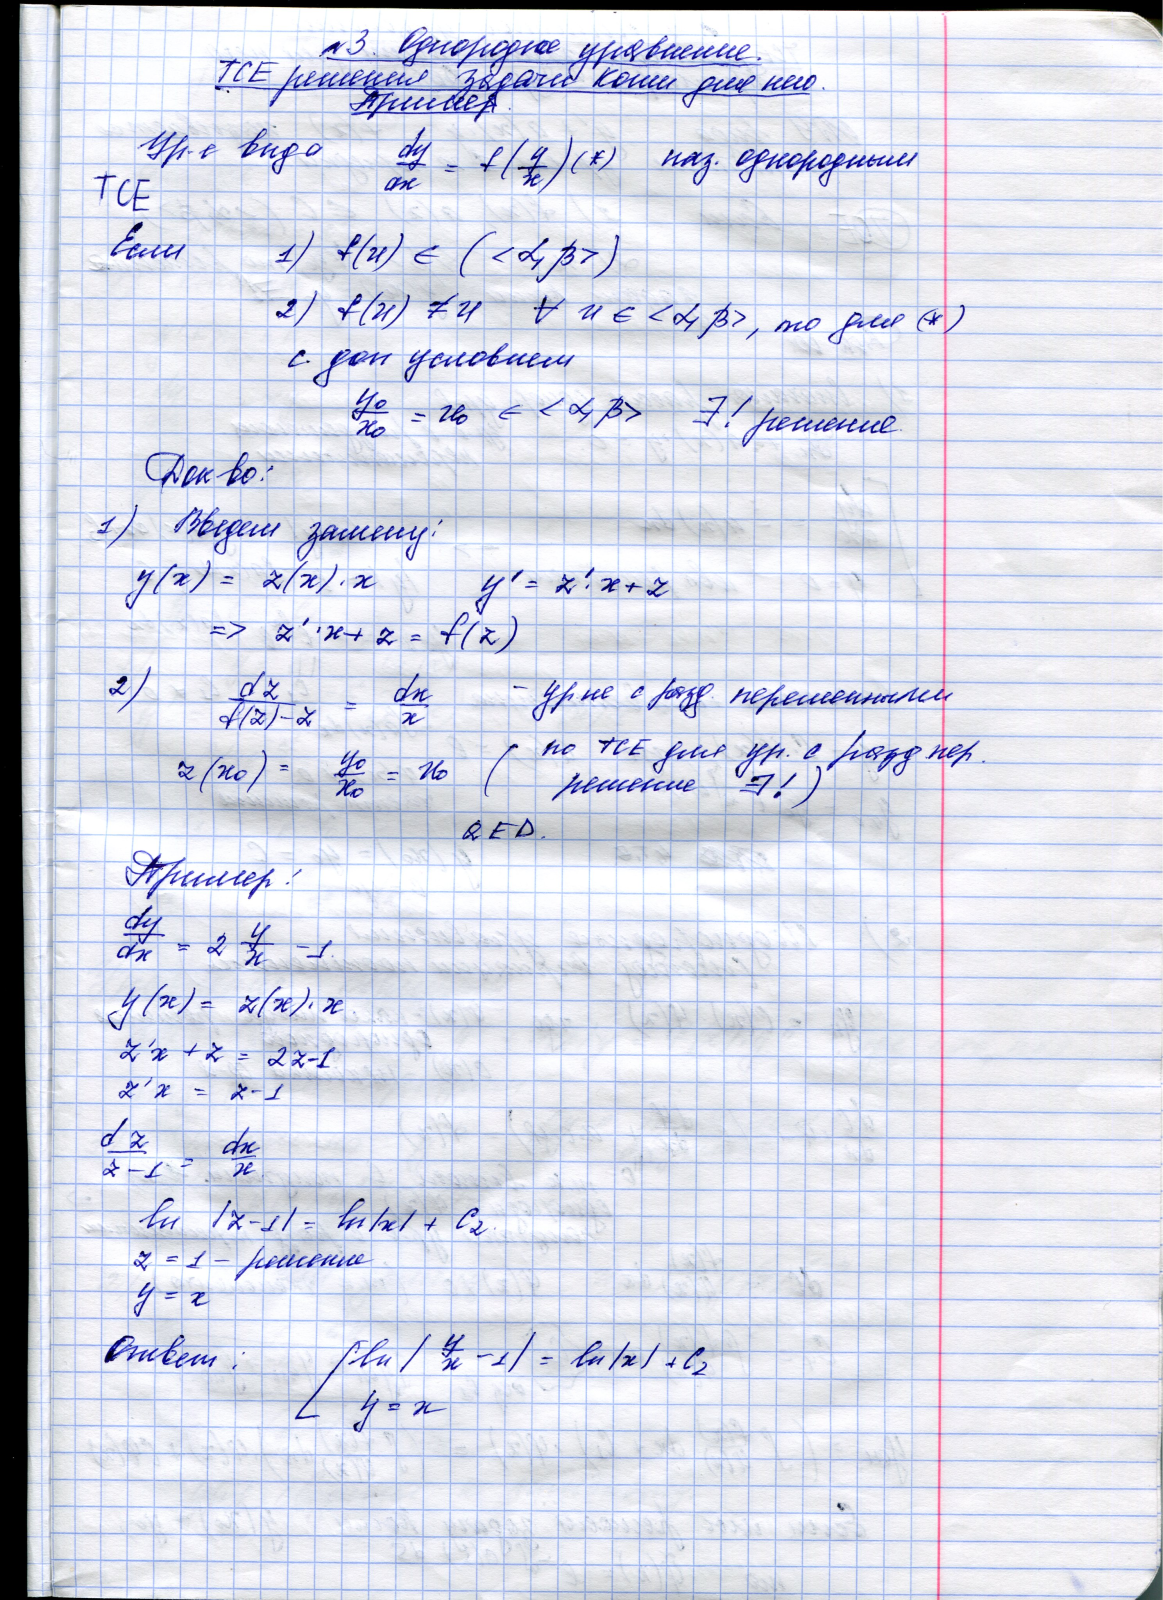 №3. Однородное уравнение.
ТСЕ решения задачи Коши для него.
Пример.
Ур-е вида dy/dx = f(y/x) (*) наз. однородным
ТСЕ
Если 1) f(u) ∈ (<α, β>)
2) f(u) ≠ u ∀ u ∈ <α, β>, то для (*)
с доп условием
y₀/x₀ = u₀ ∈ <α, β> ∃! решение
Док во:
1) Введем замену:
y(x) = z(x)·x y' = z'·x + z
=> z'·x + z = f(z)
2) dz/(f(z)-z) = dx/x - ур не с разд. переменными
z(x₀) = y₀/x₀ = u₀ (по ТСЕ для ур. с разд пер.
решение ∃!)
QED.
Пример:
dy/dx = 2 y/x - 1
y(x) = z(x)·x
z'x + z = 2z-1
z'x = z-1
dz/(z-1) = dx/x
ln |z-1| = ln|x| + C₂
z = 1 - решение
y = x
Ответ: [ ln | y/x - 1 | = ln|x| + C₂
y = x